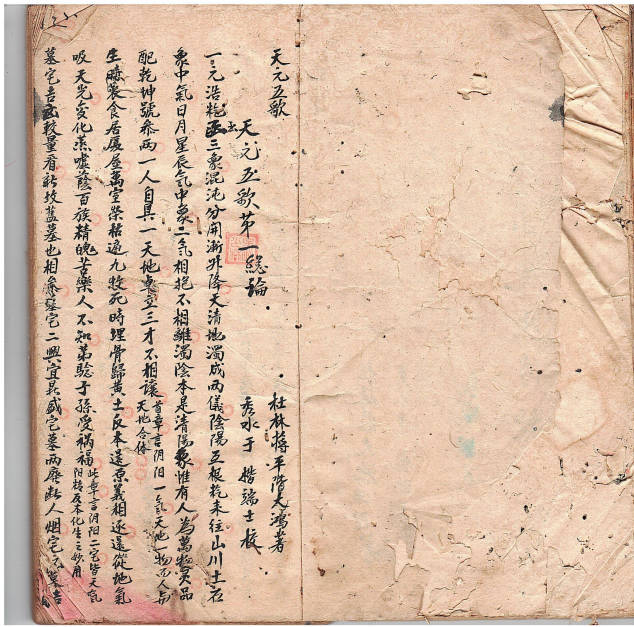 天元五歌
天元五歌第一總論
杜林蔣平階大鴻著
秀水于楷端士校
一元浩乾函三象混沌分開漸升降天清地濁成两儀陰陽互根乾来往山川土石
象中氣日月星辰氣中象二氣相抱不相離濁陰本是清陽象惟有人為萬物灵品
配乾坤號叅两一人自具一天地卓立三才不相讓
首章言阴阳一氣天地一物而人与
天地合体
生時食居屋萬室榮枯遍九牧死時埋骨歸黄土反本還原義相逐還從地氣
吸天光变化蒸嘘蔭百族精魄苦樂人不知第驗子孫受禍福
此章言阴阳二宅皆天氣
阳反本化生之妙用
墓宅吉凶較量看新坟旧墓也相叅墓宅二興宜昌盛宅墓两廢断人烟宅墓吉